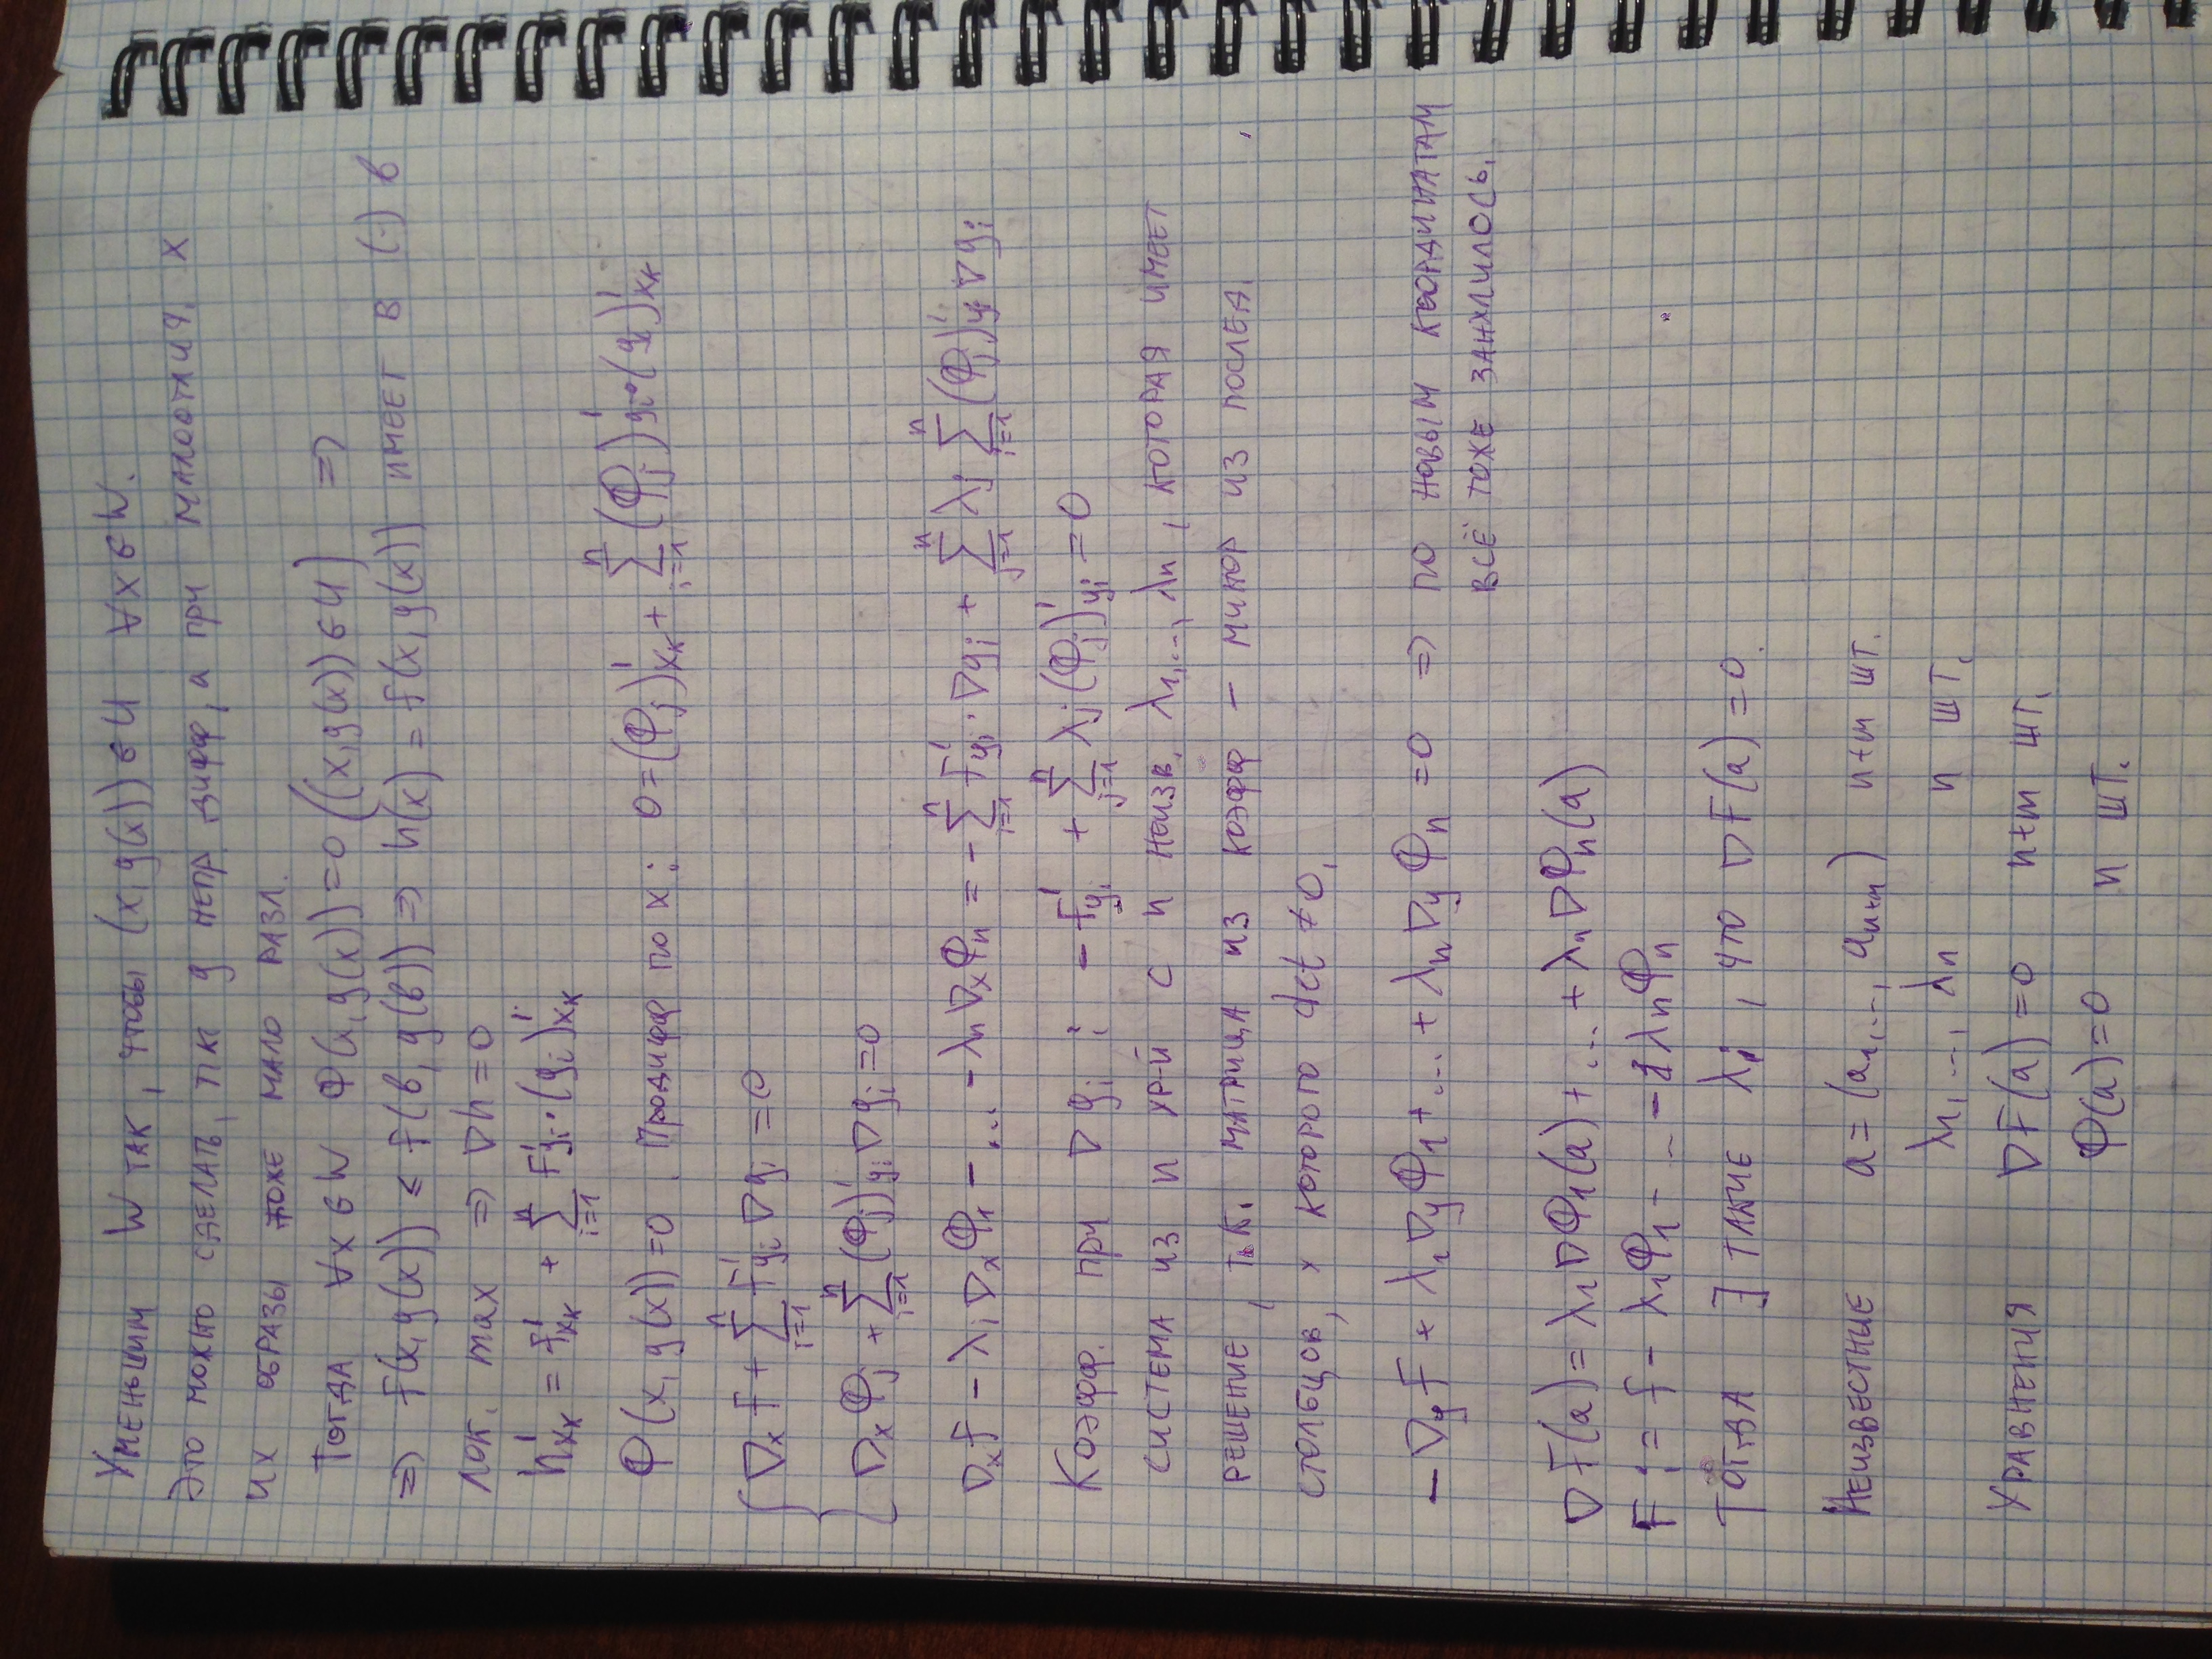 Уменьшим W так, чтобы (x, g(x)) ∈ U ∀x ∈ W.
Это можно сделать, т.к. g непр. дифф, а при малоотлич. x
их образы тоже мало разл.
Тогда ∀x ∈ W Φ(x, g(x)) = 0 ((x, g(x)) ∈ U) ⇒
⇒ f(x, g(x)) ≤ f(b, g(b)) ⇒ h(x) = f(x, g(x)) имеет в (·) b
лок. max ⇒ ∇h = 0
h'_{x_k} = f'_{x_k} + \sum_{i=1}^{n} f'_{y_i} · (g_i)'_{x_k}
Φ(x, g(x)) = 0. Продифф по x: 0 = (Φ_j)'_{x_k} + \sum_{i=1}^{n} (Φ_j)'_{y_i} · (g_i)'_{x_k}
{ ∇_x f + \sum_{i=1}^{n} f'_{y_i} ∇g_i = 0
∇_x Φ_j + \sum_{i=1}^{n} (Φ_j)'_{y_i} ∇g_i = 0
∇_x f − λ_1 ∇_x Φ_1 − ... − λ_n ∇_x Φ_n = − \sum_{i=1}^{n} f'_{y_i} · ∇g_i + \sum_{j=1}^{n} λ_j \sum_{i=1}^{n} (Φ_j)'_{y_i} ∇g_i
Коэфф. при ∇g_i : − f'_{y_i} + \sum_{j=1}^{n} λ_j (Φ_j)'_{y_i} = 0
система из n ур-й с n неизв. λ_1, ..., λ_n, которая имеет
решение, т.к. матрица из коэфф – минор из послед.
столбцов, у которого det ≠ 0.
− ∇_y f + λ_1 ∇_y Φ_1 + ... + λ_n ∇_y Φ_n = 0 ⇒ по новым координатам
всё тоже занулилось.
∇f(a) = λ_1 ∇Φ_1(a) + ... + λ_n ∇Φ_n(a)
F := f − λ_1 Φ_1 − ... − λ_n Φ_n
Тогда ∃ такие λ_i, что ∇F(a) = 0.
Неизвестные a = (a_1, ..., a_{n+m}) n+m шт.
λ_1, ..., λ_n n шт.
Уравнения ∇F(a) = 0 n+m шт.
Φ(a) = 0 n шт.